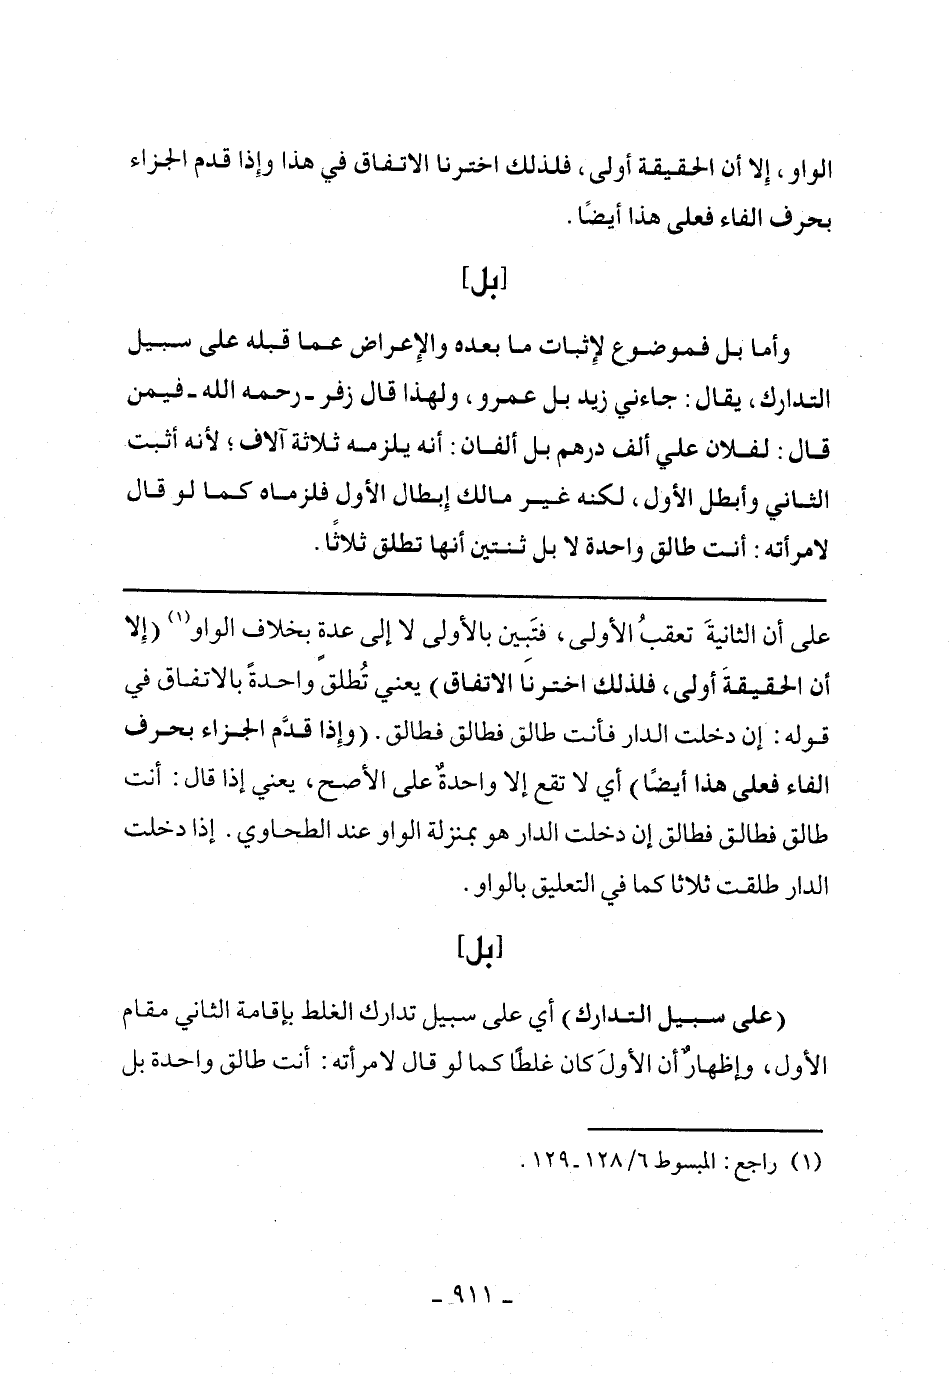 الواو، إلا أن الحقيقة أولى، فلذلك اخترنا الاتفاق في هذا وإذا قدم الجزاء
بحرف الفاء فعلى هذا أيضًا.
[بل]
وأما بل فموضوع لإثبات ما بعده والإعراض عما قبله على سبيل
التدارك، يقال: جاءني زيد بل عمرو، ولهذا قال زفر ـ رحمه الله ـ فيمن
قال: لفلان علي ألف درهم بل ألفان: أنه يلزمه ثلاثة آلاف؛ لأنه أثبت
الثاني وأبطل الأول، لكنه غير مالك إبطال الأول فلزماه كما لو قال
لامرأته: أنت طالق واحدة لا بل ثنتين أنها تطلق ثلاثًا.
على أن الثانيةَ تعقبُ الأولى، فتَبين بالأولى لا إلى عدةٍ بخلاف الواو(١) (إلا
أن الحقيقةَ أولى، فلذلك اخترنا الاتفاق) يعني تُطلق واحدةً بالاتفاق في
قوله: إن دخلت الدار فأنت طالق فطالق فطالق. (وإذا قدَّم الجزاء بحرف
الفاء فعلى هذا أيضًا) أي لا تقع إلا واحدةٌ على الأصح، يعني إذا قال: أنت
طالق فطالق فطالق إن دخلت الدار هو بمنزلة الواو عند الطحاوي. إذا دخلت
الدار طلقت ثلاثا كما في التعليق بالواو.
[بل]
(على سبيل التدارك) أي على سبيل تدارك الغلط بإقامة الثاني مقام
الأول، وإظهارٌ أن الأولَ كان غلطًا كما لو قال لامرأته: أنت طالق واحدة بل
(١) راجع: المبسوط ٦/ ١٢٨ـ١٢٩.
ـ ٩١١ ـ